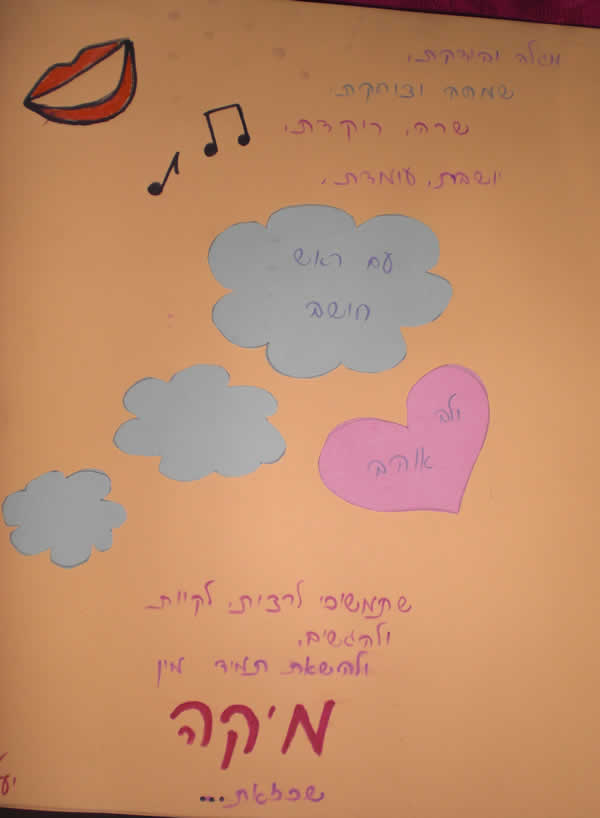 מגלה ובודקת,
שמחה וצוחקת.
שרה, רוקדת,
יושבת, עומדת,
עם ראש
חושב
ולב
אוהב
שתמשיכי לרצות, לקוות
ולהגשים,
ולהשאר תמיד מין
מיקה
שכזאת...